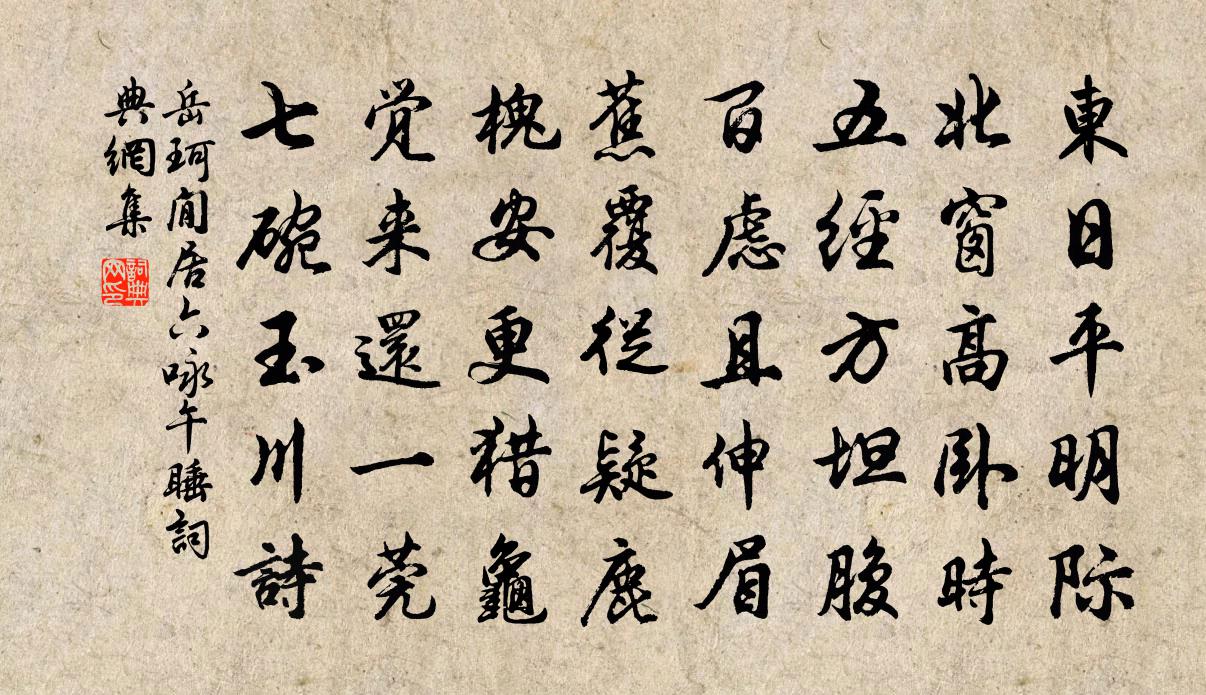 東日平明际
北窗高卧時
五經方坦腹
百慮且伸眉
蕉覆従疑鹿
槐安更猎龜
覚来還一莞
七碗玉川詩
岳珂閒居六咏午睡詞
典網集
詞典
网印